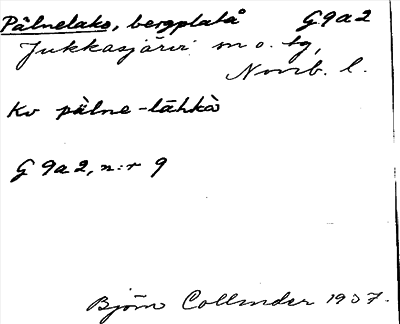 Pålnelako, bergplatå G9a2
Jukkasjärvi sn o. tg,
Norrb. l.
Kv pålne-lāhkò
G 9a2, n:r 9
Björn Collinder 1937.